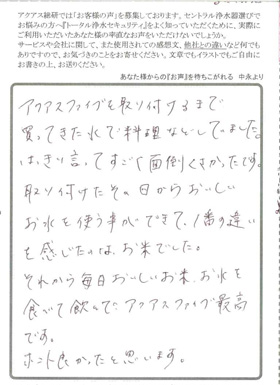 アクアス総研では「お客様の声」を募集しております。セントラル浄水器選びで
お悩みの方へ『トータル浄水セキュリティ』をよく知っていただくために、実際に
ご利用いただいたあなた様の率直なお声をいただけないでしょうか。
サービスや会社に関して、また使用されての感想文、他社との違いなど何でも
ありですので、お気づきのことをお寄せください。文章でもイラストでもご自由に
お書きの上、お送りください。
あなた様からの『お声』を待ちこがれる 中永より
アクアスファイブを取り付けるまで
買ってきた水で料理などしていました。
はっきり言ってすごく面倒くさかったです。
取り付けたその日からおいしい
お水を使う事ができて、1番の違い
を感じたのは、お米でした。
それから毎日おいしいお米、お水を
食べて飲んで、アクアスファイブ最高
です。
ホント良かったと思います。